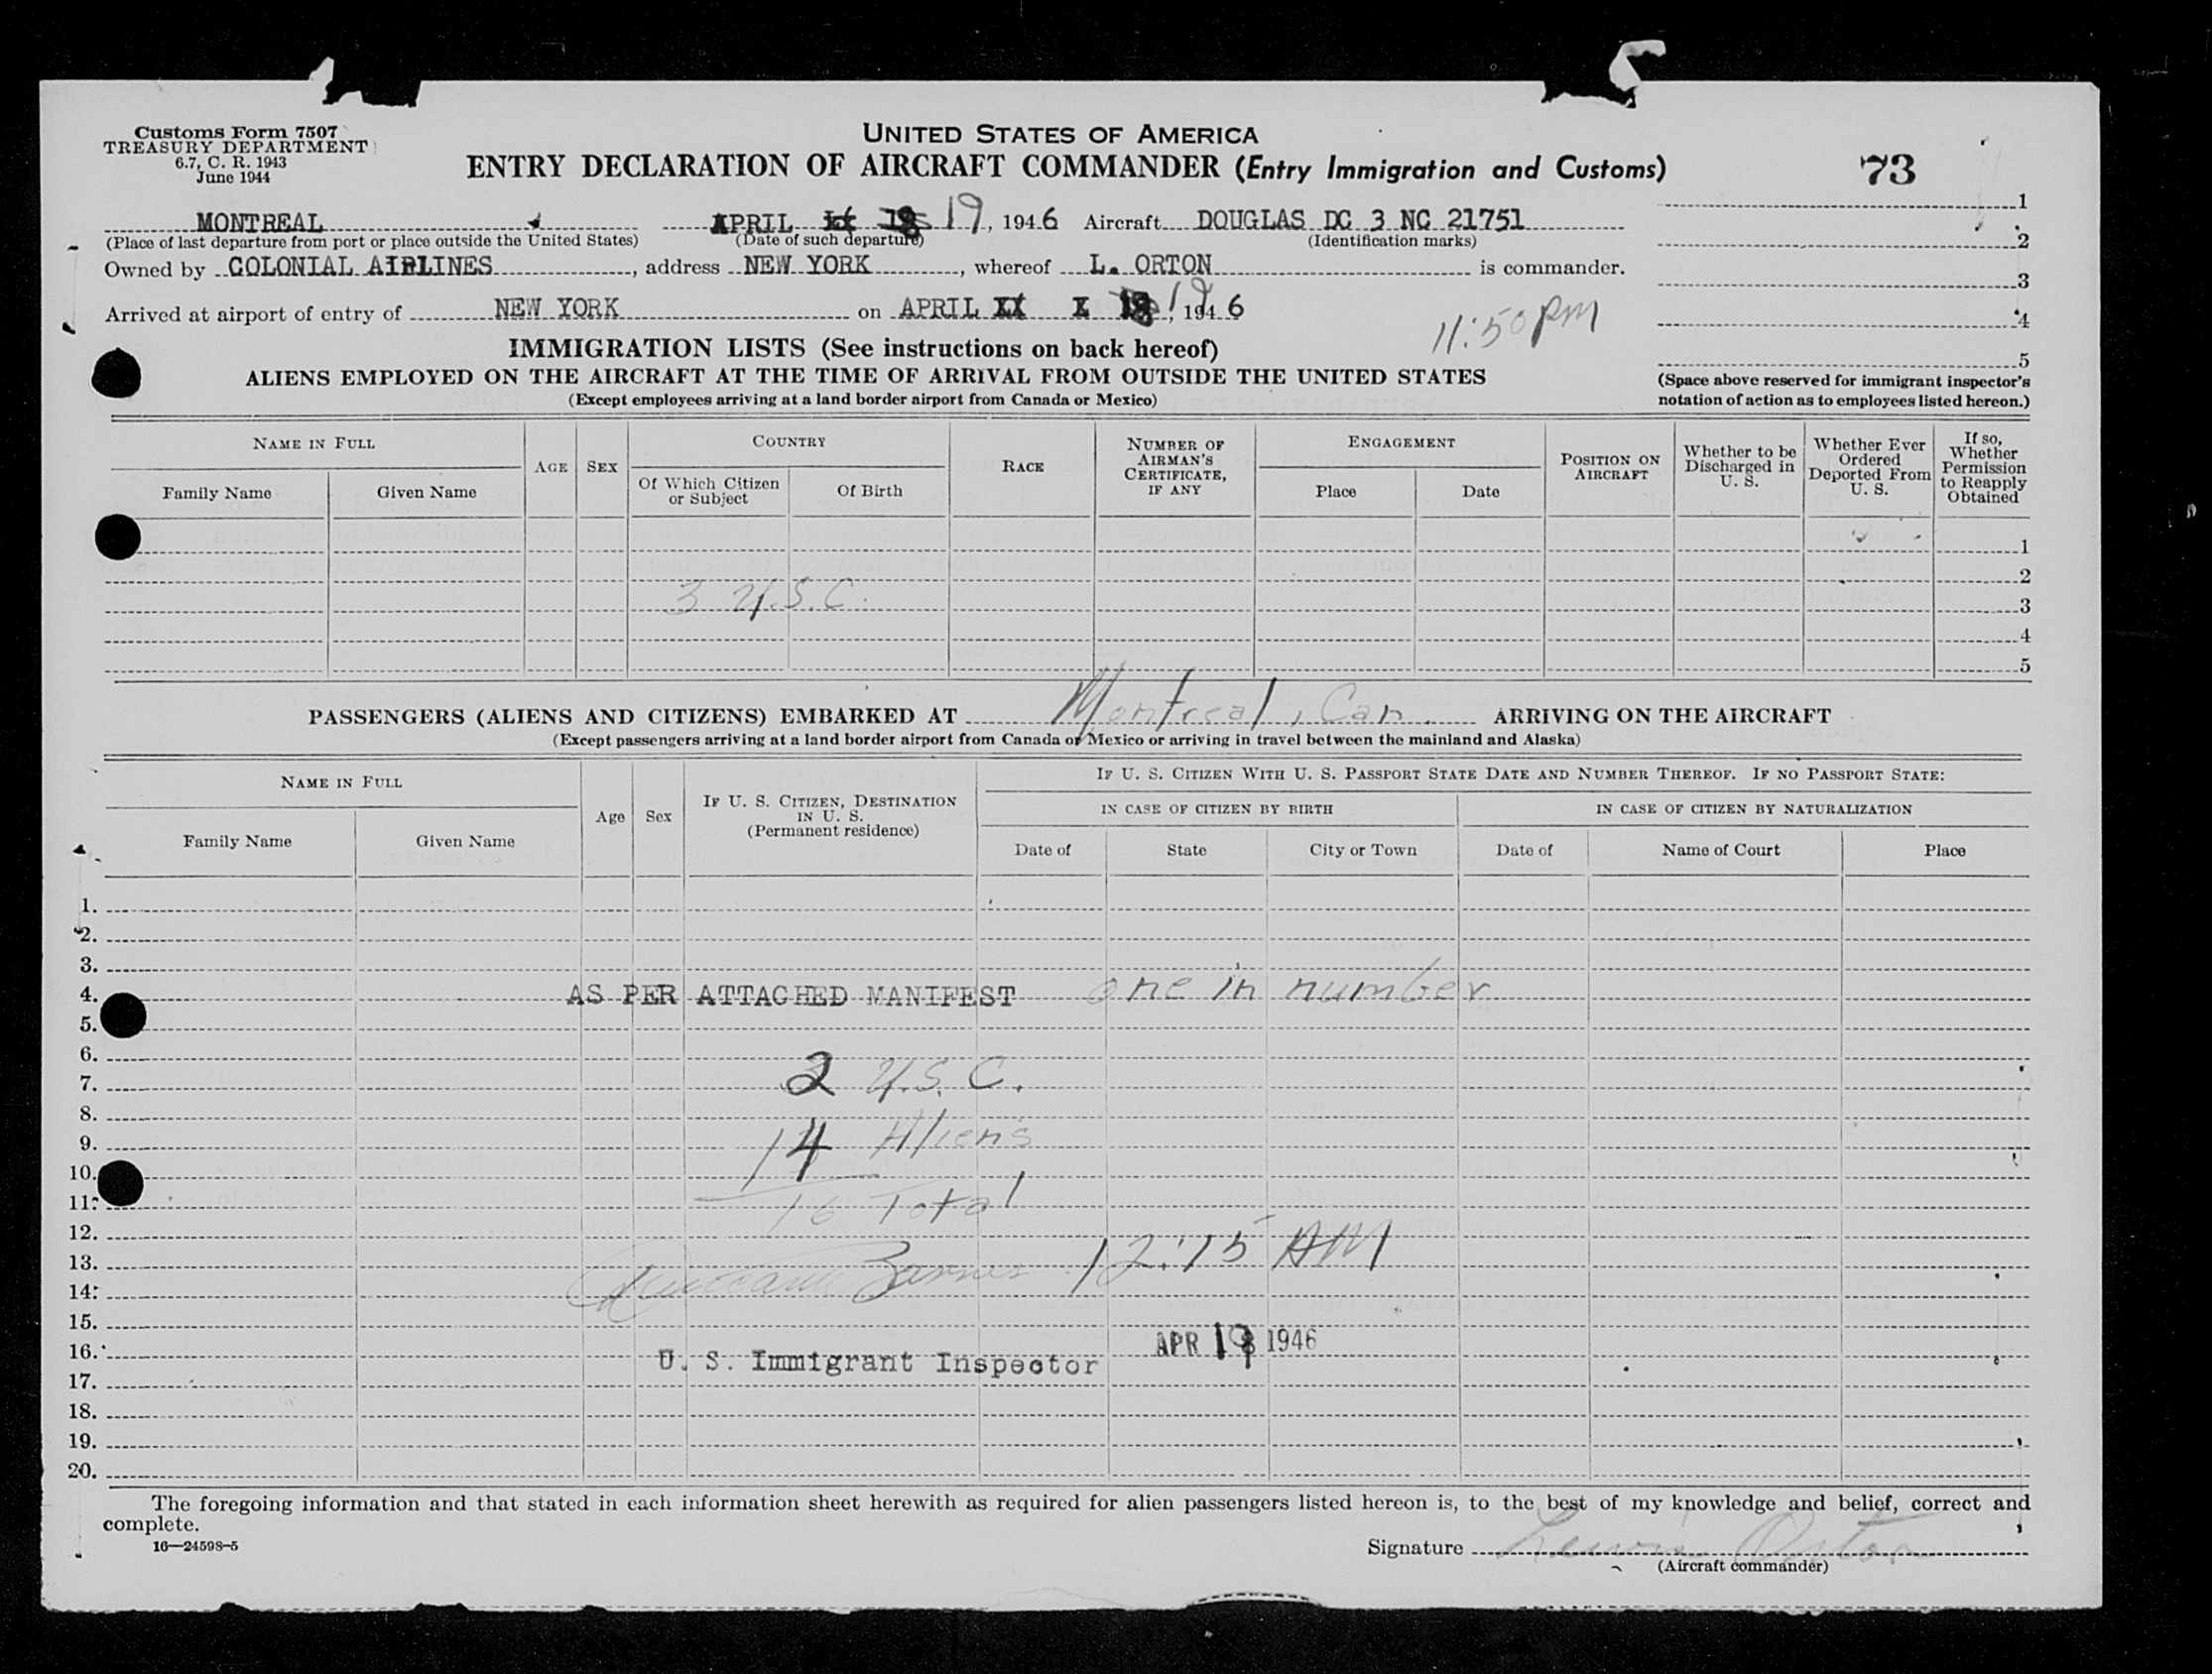 Customs Form 7507
TREASURY DEPARTMENT
6.7, C. R. 1943
June 1944
UNITED STATES OF AMERICA
ENTRY DECLARATION OF AIRCRAFT COMMANDER (Entry Immigration and Customs)
73
MONTREAL APRIL 18 19, 1946 Aircraft DOUGLAS DC 3 NC 21751
(Place of last departure from port or place outside the United States) (Date of such departure) (Identification marks)
Owned by COLONIAL AIRLINES, address NEW YORK, whereof L. ORTON is commander.
Arrived at airport of entry of NEW YORK on APRIL XX X 18 19, 1946
11:50 PM
1
2
3
4
5
(Space above reserved for immigrant inspector's
notation of action as to employees listed hereon.)
IMMIGRATION LISTS (See instructions on back hereof)
ALIENS EMPLOYED ON THE AIRCRAFT AT THE TIME OF ARRIVAL FROM OUTSIDE THE UNITED STATES
(Except employees arriving at a land border airport from Canada or Mexico)
NAME IN FULL
Family Name
Given Name
AGE
SEX
COUNTRY
Of Which Citizen or Subject
Of Birth
RACE
NUMBER OF AIRMAN'S CERTIFICATE, IF ANY
ENGAGEMENT
Place
Date
POSITION ON AIRCRAFT
Whether to be Discharged in U. S.
Whether Ever Ordered Deported From U. S.
If so, Whether Permission to Reapply Obtained
1
2
3 U.S.C.
3
4
5
PASSENGERS (ALIENS AND CITIZENS) EMBARKED AT Montreal, Can. ARRIVING ON THE AIRCRAFT
(Except passengers arriving at a land border airport from Canada or Mexico or arriving in travel between the mainland and Alaska)
NAME IN FULL
Family Name
Given Name
Age
Sex
IF U. S. CITIZEN, DESTINATION IN U. S. (Permanent residence)
IF U. S. CITIZEN WITH U. S. PASSPORT STATE DATE AND NUMBER THEREOF. IF NO PASSPORT STATE:
IN CASE OF CITIZEN BY BIRTH
IN CASE OF CITIZEN BY NATURALIZATION
Date of
State
City or Town
Date of
Name of Court
Place
1.
2.
3.
4. AS PER ATTACHED MANIFEST one in number
5.
6.
7. 2 U.S.C.
8.
9. 14 Aliens
10.
11. 16 Total
12.
13. 12:15 AM
14.
15.
16. U. S. Immigrant Inspector APR 19 1946
17.
18.
19.
20.
The foregoing information and that stated in each information sheet herewith as required for alien passengers listed hereon is, to the best of my knowledge and belief, correct and
complete.
16—24598-5
Signature Lewis Orton
(Aircraft commander)